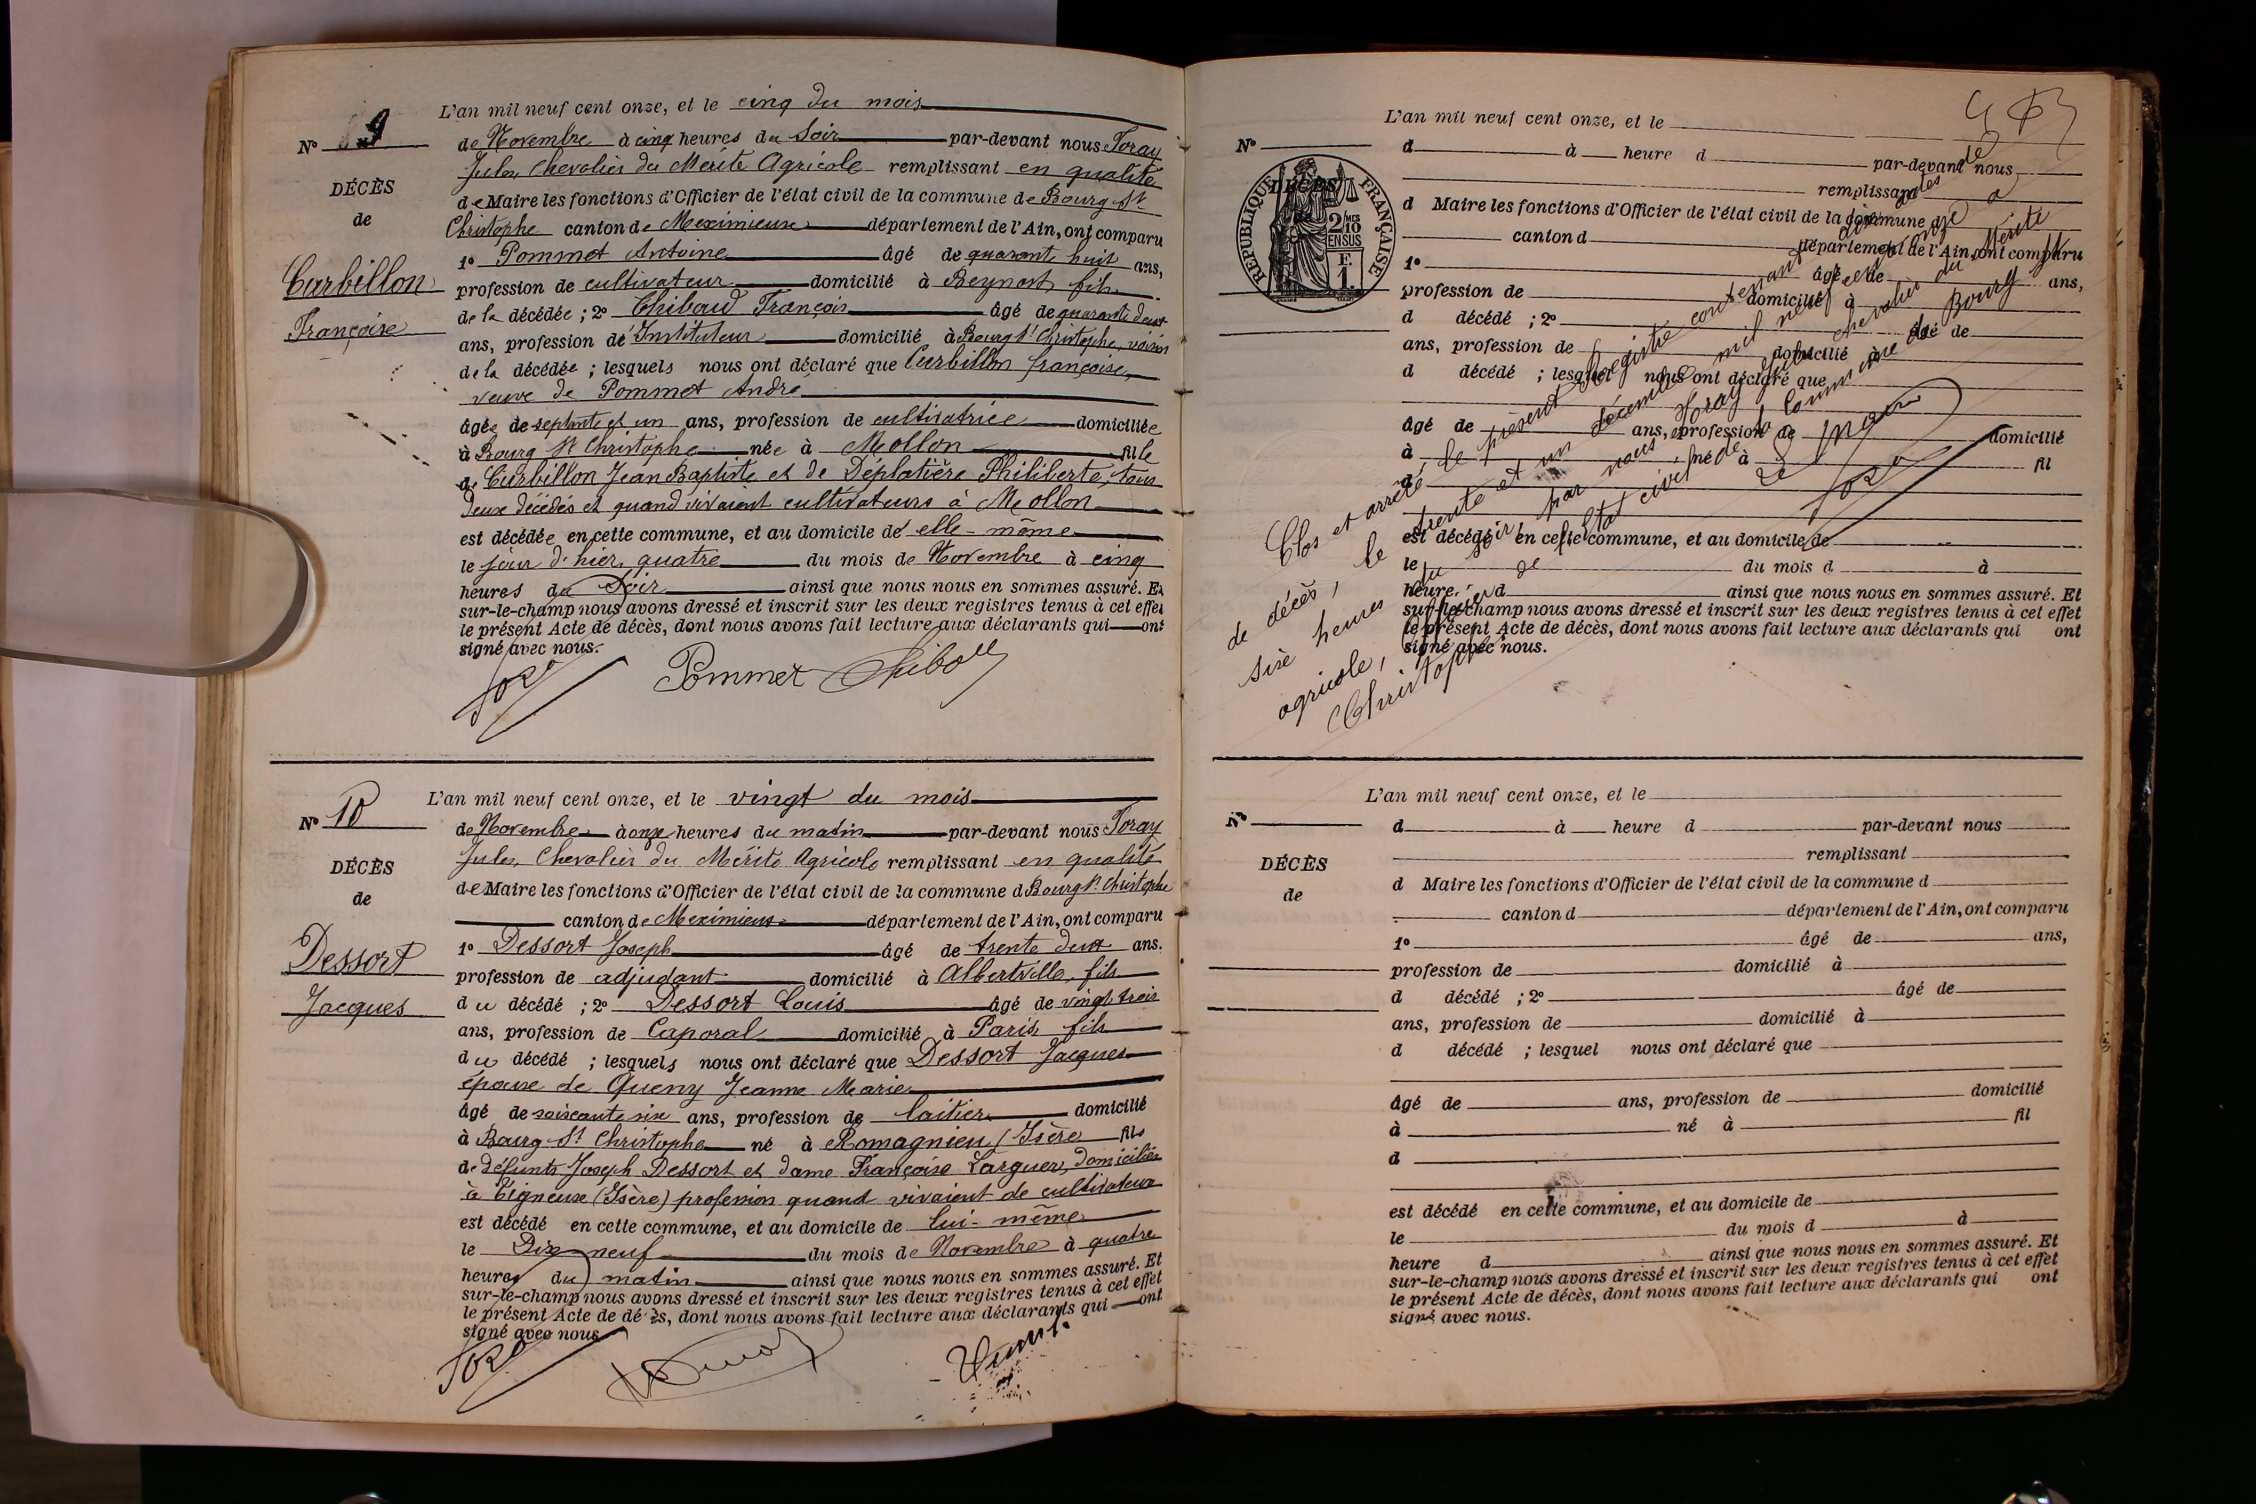 L'an mil neuf cent onze, et le cinq du mois
N° 9
de Novembre à cinq heures du Soir par-devant nous Foray
Jules, Chevalier du Mérite Agricole remplissant en qualité
DÉCÈS
de Maire les fonctions d'Officier de l'état civil de la commune de Bourg St
de
Christophe canton de Meximieux département de l'Ain, ont comparu
1° Pommet Antoine âgé de quarante huit ans,
Curbillon
profession de cultivateur domicilié à Beynost, fils
Françoise
de la décédée ; 2° Thibaud François âgé de quarante deux
ans, profession de Instituteur domicilié à Bourg St Christophe, voisin
de la décédée ; lesquels nous ont déclaré que Curbillon françoise,
veuve de Pommet André
âgée de septante et un ans, profession de cultivatrice domiciliée
à Bourg St Christophe née à Mollon fille
de Curbillon Jean Baptiste et de Déplatière Philiberte, tous
deux décédés et quand vivaient cultivateurs à Mollon
est décédée en cette commune, et au domicile de elle-même
le jour d'hier, quatre du mois de Novembre à cinq
heures du Soir ainsi que nous nous en sommes assuré. Et
sur-le-champ nous avons dressé et inscrit sur les deux registres tenus à cet effet
le présent Acte de décès, dont nous avons fait lecture aux déclarants qui ont
signé avec nous.
Foray Pommet Thibaud
L'an mil neuf cent onze, et le vingt du mois
N° 10
de Novembre à onze heures du matin par-devant nous Foray
Jules, Chevalier du Mérite Agricole remplissant en qualité
DÉCÈS
de Maire les fonctions d'Officier de l'état civil de la commune d Bourg St Christophe
de
canton de Meximieux département de l'Ain, ont comparu
Dessort
1° Dessort Joseph âgé de trente deux ans.
profession de adjudant domicilié à Albertville, fils
Jacques
du décédé ; 2° Dessort Louis âgé de vingt trois
ans, profession de Caporal domicilié à Paris, fils
du décédé ; lesquels nous ont déclaré que Dessort Jacques
époux de Queny Jeanne Marie
âgé de soixante six ans, profession de laitier domicilié
à Bourg St Christophe né à Romagnieu (Isère fils
de défunts Joseph Dessort et dame Françoise Larguer, domiciliés
à Tigneux (Isère) profession quand vivaient de cultivateurs
est décédé en cette commune, et au domicile de lui-même
le Dix neuf du mois de Novembre à quatre
heures du matin ainsi que nous nous en sommes assuré. Et
sur-le-champ nous avons dressé et inscrit sur les deux registres tenus à cet effet
le présent Acte de décès, dont nous avons fait lecture aux déclarants qui ont
signé avec nous
Foray
L'an mil neuf cent onze, et le
N°
d à heure d par-devant nous
DÉCÈS
remplissant
RÉPUBLIQUE FRANÇAISE
2/10 EN SUS
F. 1.
d Maire les fonctions d'Officier de l'état civil de la commune d
canton d département de l'Ain, ont comparu
1° âgé de ans,
profession de domicilié à
d décédé ; 2° âgé de
ans, profession de domicilié à
d décédé ; lesquel nous ont déclaré que
âgé de ans, profession de domicilié
à né à fil
d
est décédé en cette commune, et au domicile de
le du mois d à
heure d ainsi que nous nous en sommes assuré. Et
sur-le-champ nous avons dressé et inscrit sur les deux registres tenus à cet effet
le présent Acte de décès, dont nous avons fait lecture aux déclarants qui ont
signé avec nous.
Clos et arrêté le présent Registre contenant des actes de
de décès, le trente et un décembre mil neuf cent onze a
six heures du soir par nous Foray Jules chevalier du Mérite
agricole, Officier de l'état civil de la Commune de Bourg St
Christophe
Le Maire
Foray
L'an mil neuf cent onze, et le
N°
d à heure d par-devant nous
remplissant
DÉCÈS
d Maire les fonctions d'Officier de l'état civil de la commune d
de
canton d département de l'Ain, ont comparu
1° âgé de ans,
profession de domicilié à
d décédé ; 2° âgé de
ans, profession de domicilié à
d décédé ; lesquel nous ont déclaré que
âgé de ans, profession de domicilié
à né à fil
d
est décédé en cette commune, et au domicile de
le du mois d à
heure d ainsi que nous nous en sommes assuré. Et
sur-le-champ nous avons dressé et inscrit sur les deux registres tenus à cet effet
le présent Acte de décès, dont nous avons fait lecture aux déclarants qui ont
signé avec nous.